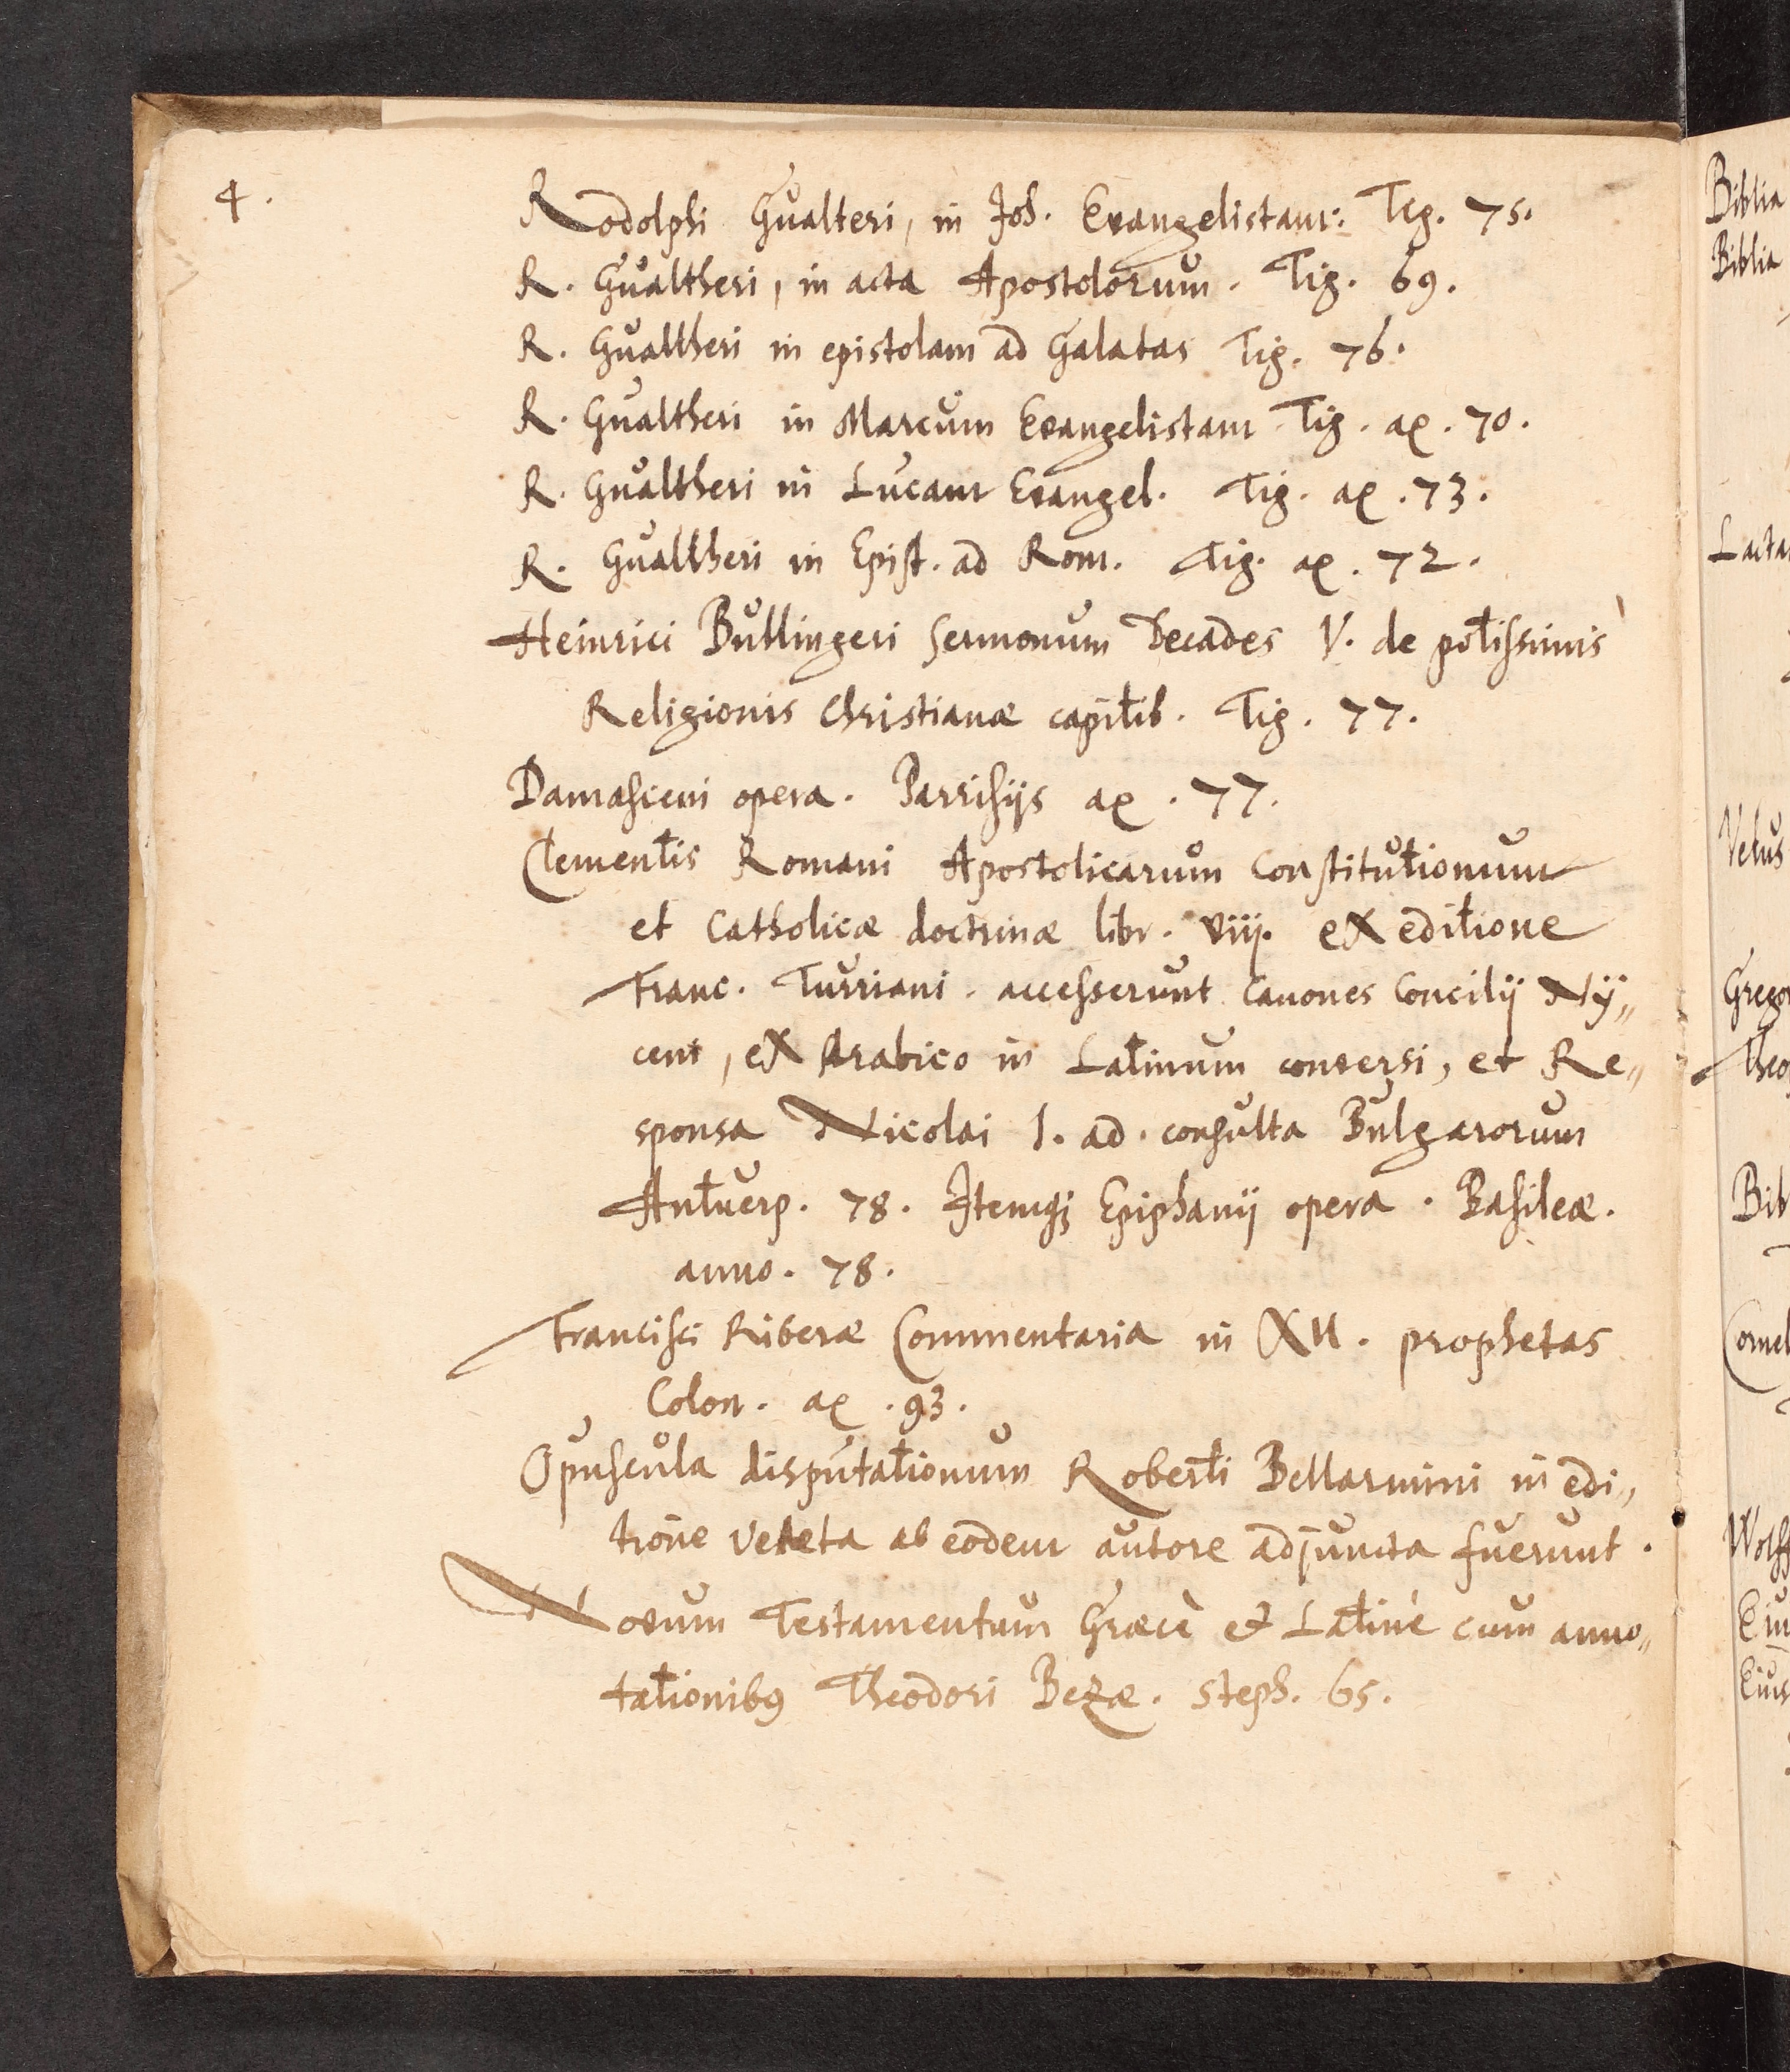 4.
Rodolphi Gualteri, in Joh. Evangelistam. Tig. 75.
R. Gualtheri, in acta Apostolorum. Tig. 69.
R. Gualtheri in epistolam ad Galatas Tig. 76.
R. Gualtheri in Marcum Evangelistam Tig. ao. 70.
R. Gualtheri in Lucam Evangel. Tig. ao. 73.
R. Gualtheri in Epist. ad Rom. Tig. ao. 72.
Heinrici Bullingeri Sermonum Decades V. de potissimis
Religionis Christianæ capitib. Tig. 77.
Damasceni opera. Parrisijs ao. 77.
Clementis Romani Apostolicarum Constitutionum
et Catholicæ doctrinæ libr. viij. ex editione
Franc. Turriani. accesserunt canones Concilij Ny„
ceni, ex Arabico in Latinum conversi, et Re„
sponsa Nicolai I. ad. consulta Bulgarorum
Antverp. 78. Itemq; Epiphanij opera. Basileæ.
anno. 78.
Francisci Riberæ Commentaria in XII. prophetas
Colon. ao. 93.
Opuscula disputationum Roberti Bellarmini in edi„
tione Veneta ab eodem autore adjuncta fuerunt.
Novum Testamentum Græcè et Latinè cum anno„
tationibus Theodori Bezæ. Steph. 65.
Biblia
Biblia
Lacta
Vetus
Gregor
Theo
Bib
Cornel
Wolff
Eiu
Eius